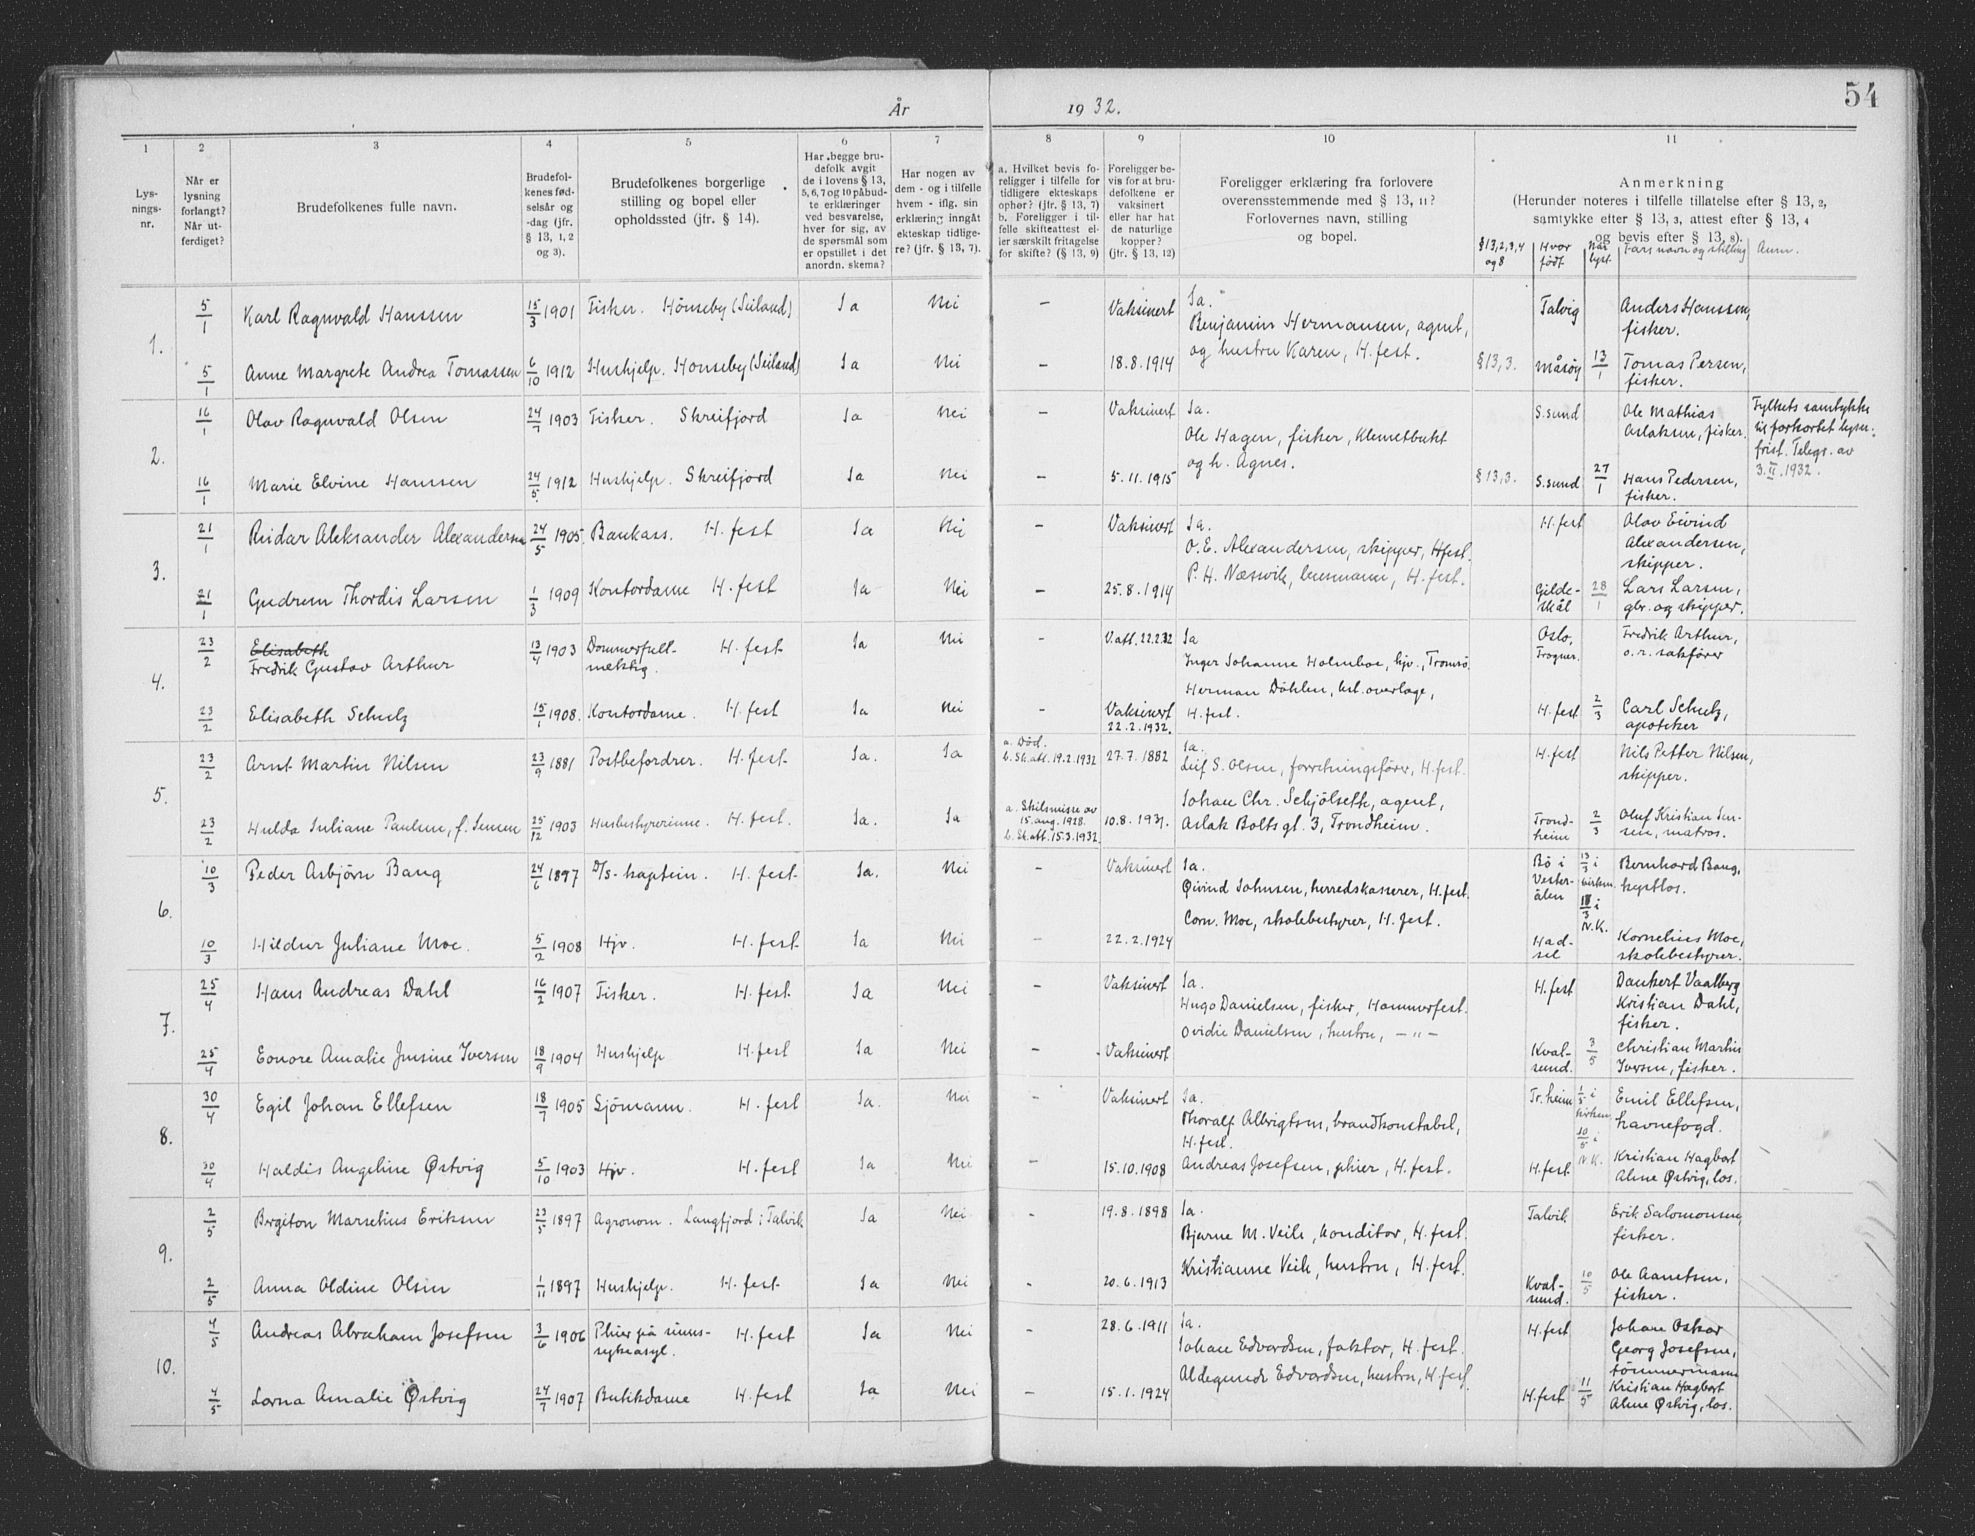 54
År 1932.
1
2
3
4
5
6
7
8
9
10
11
Lysningsnr.
Når er lysning forlangt? Når utferdiget?
Brudefolkenes fulle navn.
Brudefolkenes fødselsår og -dag (jfr. § 13, 1, 2 og 3).
Brudefolkenes borgerlige stilling og bopel eller opholdssted (jfr. § 14).
Har begge brudefolk avgit de i lovens § 13, 5, 6, 7 og 10 påbudte erklæringer ved besvarelse, hver for sig, av de spørsmål som er opstillet i det anordn. skema?
Har nogen av dem - og i tilfelle hvem - iflg. sin erklæring inngåt ekteskap tidligere? (jfr. § 13, 7).
a. Hvilket bevis foreligger i tilfelle for tidligere ekteskaps ophør? (jfr. § 13, 7) b. Foreligger i tilfelle skifteattest eller særskilt fritagelse for skifte? (§ 13, 9)
Foreligger bevis for at brudefolkene er vaksinert eller har hat de naturlige kopper? (jfr. § 13, 12)
Foreligger erklæring fra forlovere overensstemmende med § 13, 11? Forlovernes navn, stilling og bopel.
Anmerkning
(Herunder noteres i tilfelle tillatelse efter § 13, 2, samtykke efter § 13, 3, attest efter § 13, 4 og bevis efter § 13, 8).
§ 13,2,3,4 og 8 Hvor født Når lyst Fars navn og stilling Anm.
1.
5/1 Karl Ragnvald Hanssen 15/3 1901 Fisker. Hönseby (Seiland) Ja Nei — Vaksinert Ja. Talvig Anders Hanssen, fisker.
Benjamin Hermansen, agent,
og hustru Karen, H.fest.
5/1 Anne Margrete Andrea Tomassen 6/10 1912 Hushjelp. Honseby (Seiland) Ja Nei — 18.8.1914 § 13,3. Måsøy 13/1 Tomas Persen, fisker.
2.
16/1 Olav Ragnvald Olsen 24/7 1903 Fisker. Skreifjord Ja Nei — Vaksinert Ja. S.sund Ole Mathias Aslaksen, fisker.
Fylkets samtykke til forkortet lysn. frist. Telegr. av 3.II.1932.
Ole Hagen, fisker, Klemetbukt
og h. Agnes.
16/1 Marie Elvine Hanssen 24/5 1912 Hushjelp. Skreifjord Ja Nei — 5.11.1915 § 13,3. S.sund 27/1 Hans Pedersen, fisker.
3.
21/1 Reidar Aleksander Alexandersen 24/5 1905. Bankass. H.fest Ja Nei — Vaksinert Ja. H.fest Olav Eivind Alexandersen, skipper.
O.E. Alexandersen, skipper, H.fest.
P.H. Næsvik, lensmann, H.fest.
21/1 Gudrun Thordis Larsen 1/3 1909 Kontordame H.fest Ja Nei — 25.8.1914 Gildeskål 28/1 Lars Larsen, gbr. og skipper.
4.
23/2 Elisabeth Fredrik Gustav Arthur 13/4 1903 Dommerfullmektig. H.fest Ja Nei - V.att. 22.2.32 Ja Oslo, Frogner. Fredrik Arthur, o.r. sakfører
Inger Johanne Holmboe, hjv., Tromsö.
Herman Döhlen, overlæge,
H.fest.
23/2 Elisabeth Schulz 15/1 1908. Kontordame. H.fest Ja Nei - Vaksinert 22.2.1932. H.fest 2/3 Carl Schulz, apoteker
5.
23/2 Arnt Martin Nilsen 23/9 1881 Postbefordrer. H.fest Ja. Ja a. Död. b. Sk.att. 19.2.1932 27.7.1882 Ja. H.fest Nils Petter Nilsen, skipper.
Leif S. Olsen, forretningsfører, H.fest.
Johan Chr. Schjölseth, agent,
Aslak Bolts gt. 3, Trondheim.
23/2 Hulda Juliane Paulsen, f. Jensen 25/12 1903 Husbestyrerinne. H.fest. Ja. Ja a. Skilsmisse av 15. aug. 1928. b. Sk.att. 15.3.1932. 10.8.1931. Trondheim 2/3 Oluf Kristian Jensen, matros.
6.
10/3 Peder Asbjörn Bang 24/6 1897 D/s-kaptein. H.fest Ja. Nei — Vaksinert Ja. Bö i Vesterålen 13/3 i kirken. 18/3 i N.K. Bernhard Bang, kystlos.
Øivind Johnsen, herredskasserer, H.fest.
Corn. Moe, skolebestyrer, H.fest.
10/3 Hildur Juliane Moe. 5/2 1908 Hjv. H.fest Ja Nei — 22.2.1924 Hadsel Kornelius Moe, skolebestyrer.
7.
25/4 Hans Andreas Dahl 16/2 1907 Fisker. H.fest Ja Nei — Vaksinert Ja. H.fest Dankert Vaalberg Kristian Dahl, fisker.
Hugo Danielsen, fisker, Hammerfest.
Ovidie Danielsen, hustru, —"—
25/4 Eonore Amalie Jensine Iversen 18/9 1904 Hushjelp H.fest Ja Nei — Vaksinert Kvalsund. 3/5 Christian Martin Iversen, fisker.
8.
30/4 Egil Johan Ellefsen 18/7 1905 Sjömann. H.fest Ja. Nei — Vaksinert Ja. Tr.heim 1/5 i kirken 10/5 i N.K. Emil Ellefsen, havnefogd.
Thoralf Albrigtsen, brandkonstabel,
H.fest.
30/4 Haldis Angeline Østvig 5/10 1903 Hjv. H.fest Ja Nei — 15.10.1908 Andreas Josefsen, pleier, H.fest. H.fest Kristian Hagbart Aline Østvig, los.
9.
2/5 Bergiton Marselius Eriksen 23/5 1897 Agronom. Langfjord i Talvik Ja Nei - 19.8.1898 Ja. Talvik Erik Salomonsen, fisker.
Bjarne M. Veile, konditor, H.fest.
Kristianne Veile, hustru, H.fest.
2/5 Anna Oldine Olsen 1/11 1897 Hushjelp. H.fest Ja Nei - 20.6.1913 Kvalsund. 10/5 Ole Aanetsen, fisker.
10.
4/5 Andreas Abraham Josefsen 3/6 1906 Pleier på sinnssykeasyl. H.fest Ja Nei - 28.6.1911 Ja. H.fest Johan Oskar Georg Josefsen, tömmermann
Johan Edvardsen, faktor, H.fest.
Aldegunde Edvardsen, hustru, H.fest.
4/5 Lorna Amalie Østvig 24/7 1907 Butikdame H.fest Ja Nei — 15.1.1924 H.fest 11/5 Kristian Hagbart Aline Østvig, los.